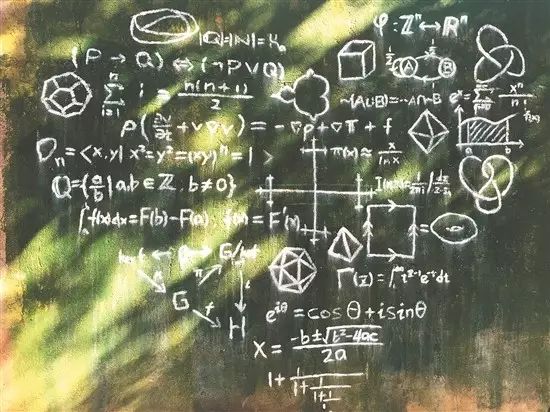 |Q|=|N|=ℵ₀
φ: Zⁿ ↔ Rⁿ
(P → Q) ⇔ (¬P ∨ Q)
1/2 A B
n Σ i=1 i = n(n+1)/2
~(A∪B)=~A∩~B
eˣ=Σ xⁿ/n!
ρ(∂v/∂t + v·∇v) = -∇p + ∇T + f
f(x)
a b
Dₙ = <x,y| x²=y²=(xy)ⁿ=1>
π(x) ≈ x/ln x
Q={a/b | a,b ∈ Z, b≠0}
∫f(x)dx = F(b)-F(a)
f(x) = F'(x)
G
H
Γ(z) = ∫ t^(z-1) e^(-t) dt
e^(iθ) = cos θ + i sin θ
x = (-b±√(b²-4ac))/2a
1+1/(1+1/(1+1/1